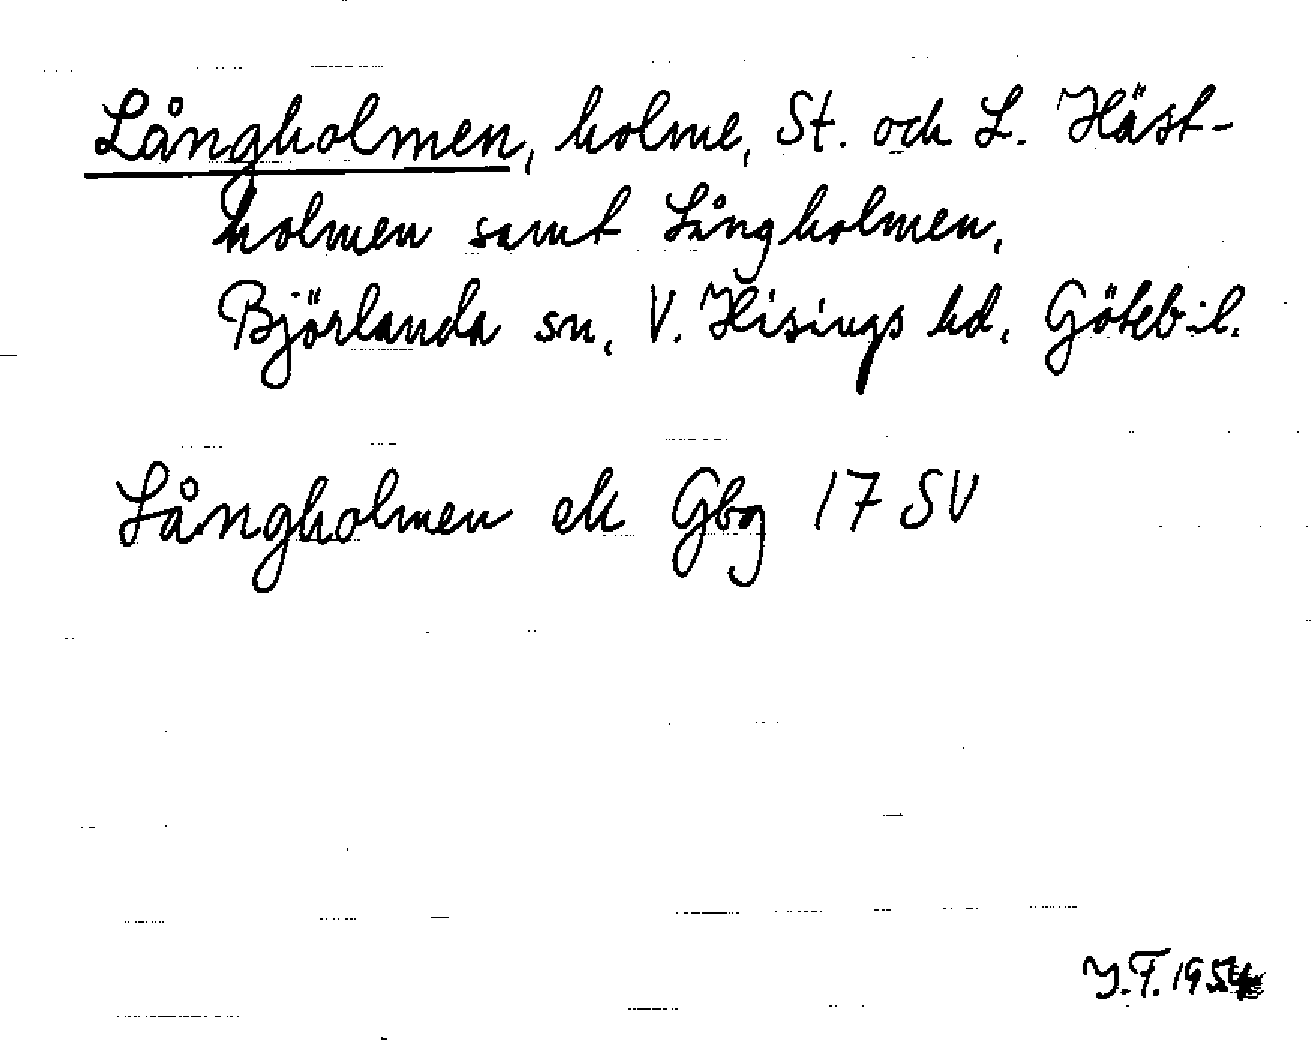 Långholmen, holme, St. och L. Häst-
holmen samt Långholmen,
Björlanda sn, V. Hisings hd, Göteb·l.
Långholmen ek Gbg 17 SV
Y.F. 1954